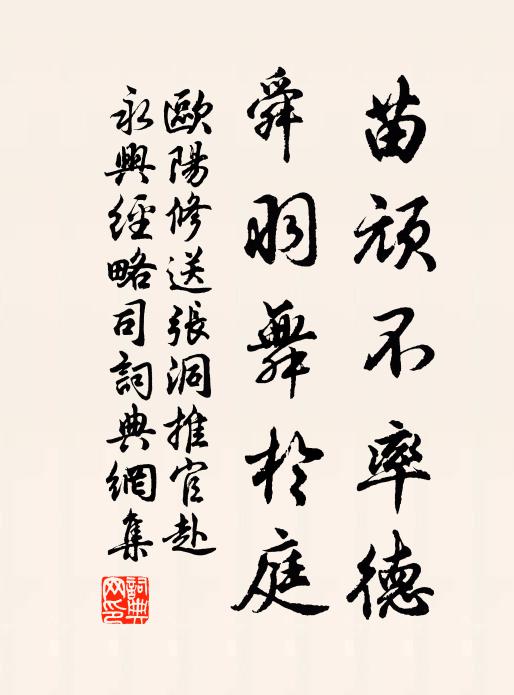 苗頑不率德
舜羽舞於庭
歐陽修送張洞推官赴
永興經略司詞典網集
詞典网印